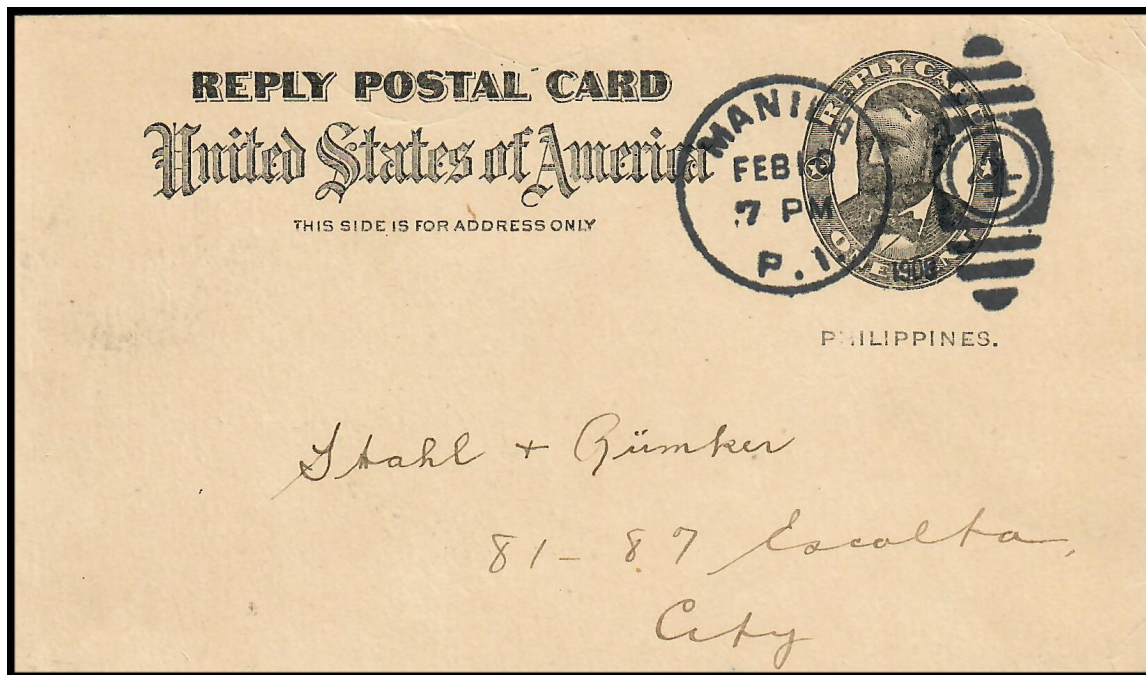 REPLY POSTAL CARD
United States of America
THIS SIDE IS FOR ADDRESS ONLY
REPLY CARD
MANILA
FEB
7 PM
P.I.
1908
PHILIPPINES.
Stahl + Rümker
81-87 Escolta,
City